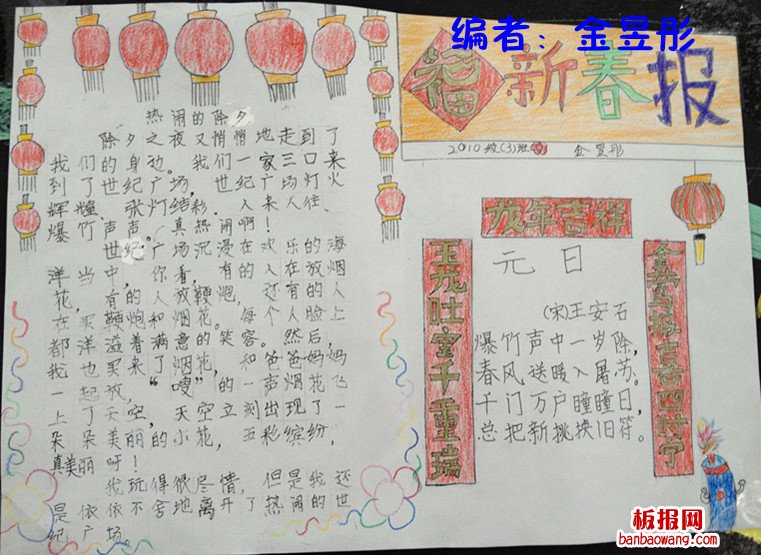 编者：金昱彤
福新春报
2010级(3)班 金昱彤
热闹的除夕
除夕之夜又悄悄地走到了
我们的身边。我们一家三口来
到了世纪广场,世纪广场灯火
辉煌、张灯结彩、人来人往、
爆竹声声。真热闹啊!
世纪广场沉浸在欢乐的海
洋当中,你看,有的人在放烟
花,有的人放鞭炮,还有的人
在买鞭炮和烟花。每个人脸上
都洋溢着满意的笑容。然后,
我也买来了烟花,和爸爸妈妈
一起放,“嗖”的一声烟花飞
上了天空,天空立刻出现了一
朵朵美丽的小花,五彩缤纷,
真美丽呀!
我玩得很尽情,但是我还
是依依不舍地离开了热闹的世
纪广场。
龙年吉祥
玉龙吐宝千重瑞
吉四时宁
元日
(宋)王安石
爆竹声中一岁除,
春风送暖入屠苏。
千门万户瞳瞳日,
总把新挑换旧符。
板报网
banbaowang.com